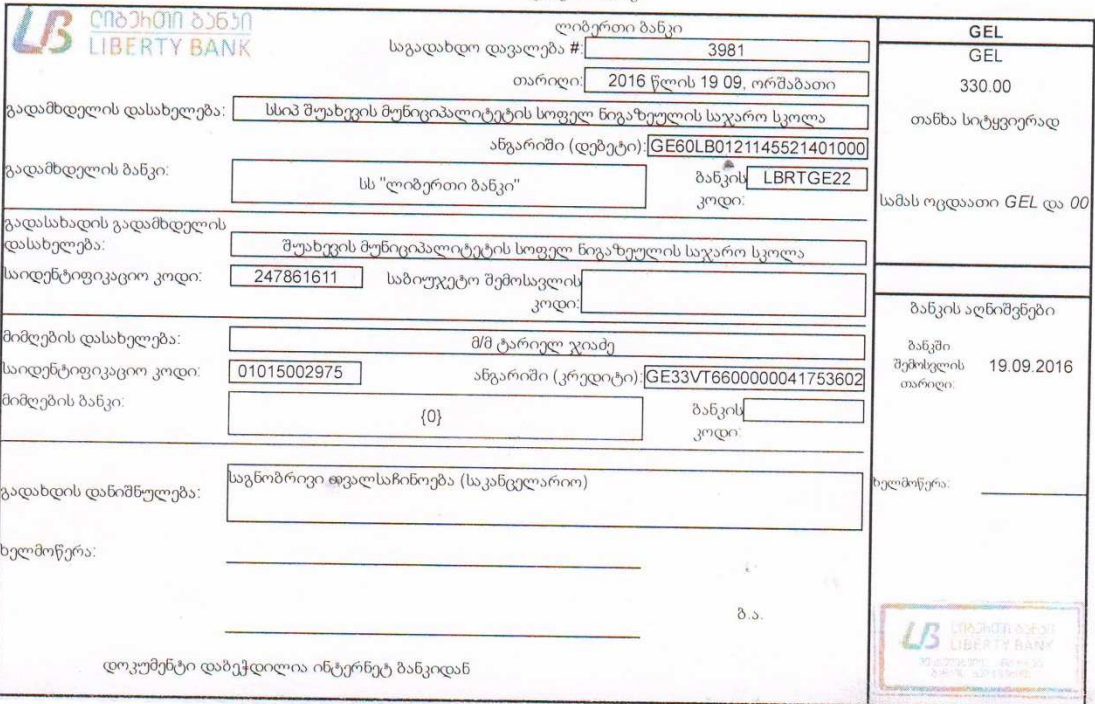 ლიბერთი ბანკი
LIBERTY BANK
ლიბერთი ბანკი
საგადახდო დავალება #: 3981
თარიღი: 2016 წლის 19 09, ორშაბათი
გადამხდელის დასახელება: სსიპ შუახევის მუნიციპალიტეტის სოფელ ნიგაზეულის საჯარო სკოლა
ანგარიში (დებეტი): GE60LB0121145521401000
გადამხდელის ბანკი: სს "ლიბერთი ბანკი"
ბანკის კოდი: LBRTGE22
გადასახადის გადამხდელის
დასახელება: შუახევის მუნიციპალიტეტის სოფელ ნიგაზეულის საჯარო სკოლა
საიდენტიფიკაციო კოდი: 247861611
საბიუჯეტო შემოსავლის
კოდი:
მიმღების დასახელება: მ/მ ტარიელ ჯიაძე
საიდენტიფიკაციო კოდი: 01015002975
ანგარიში (კრედიტი): GE33VT6600000041753602
მიმღების ბანკი: {0}
ბანკის
კოდი:
გადახდის დანიშნულება: საგნობრივი თვალსაჩინოება (საკანცელარიო)
ხელმოწერა:
ბ.ა.
დოკუმენტი დაბეჭდილია ინტერნეტ ბანკიდან
GEL
GEL
330.00
თანხა სიტყვიერად
სამას ოცდაათი GEL და 00
ბანკის აღნიშვნები
ბანკში
შემოსვლის 19.09.2016
თარიღი:
ხელმოწერა:
ლიბერთი ბანკი
LIBERTY BANK